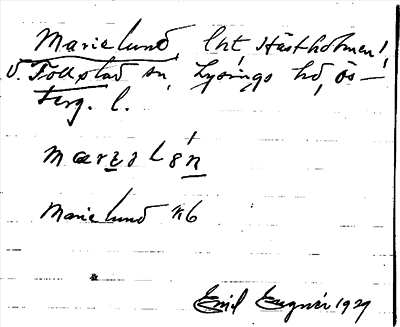 Marielund, lht, Hästholmen!
V. Tollstad sn, Lysings hd, Ös–
terg. l.
Marielund
Emil Eugnér 1929